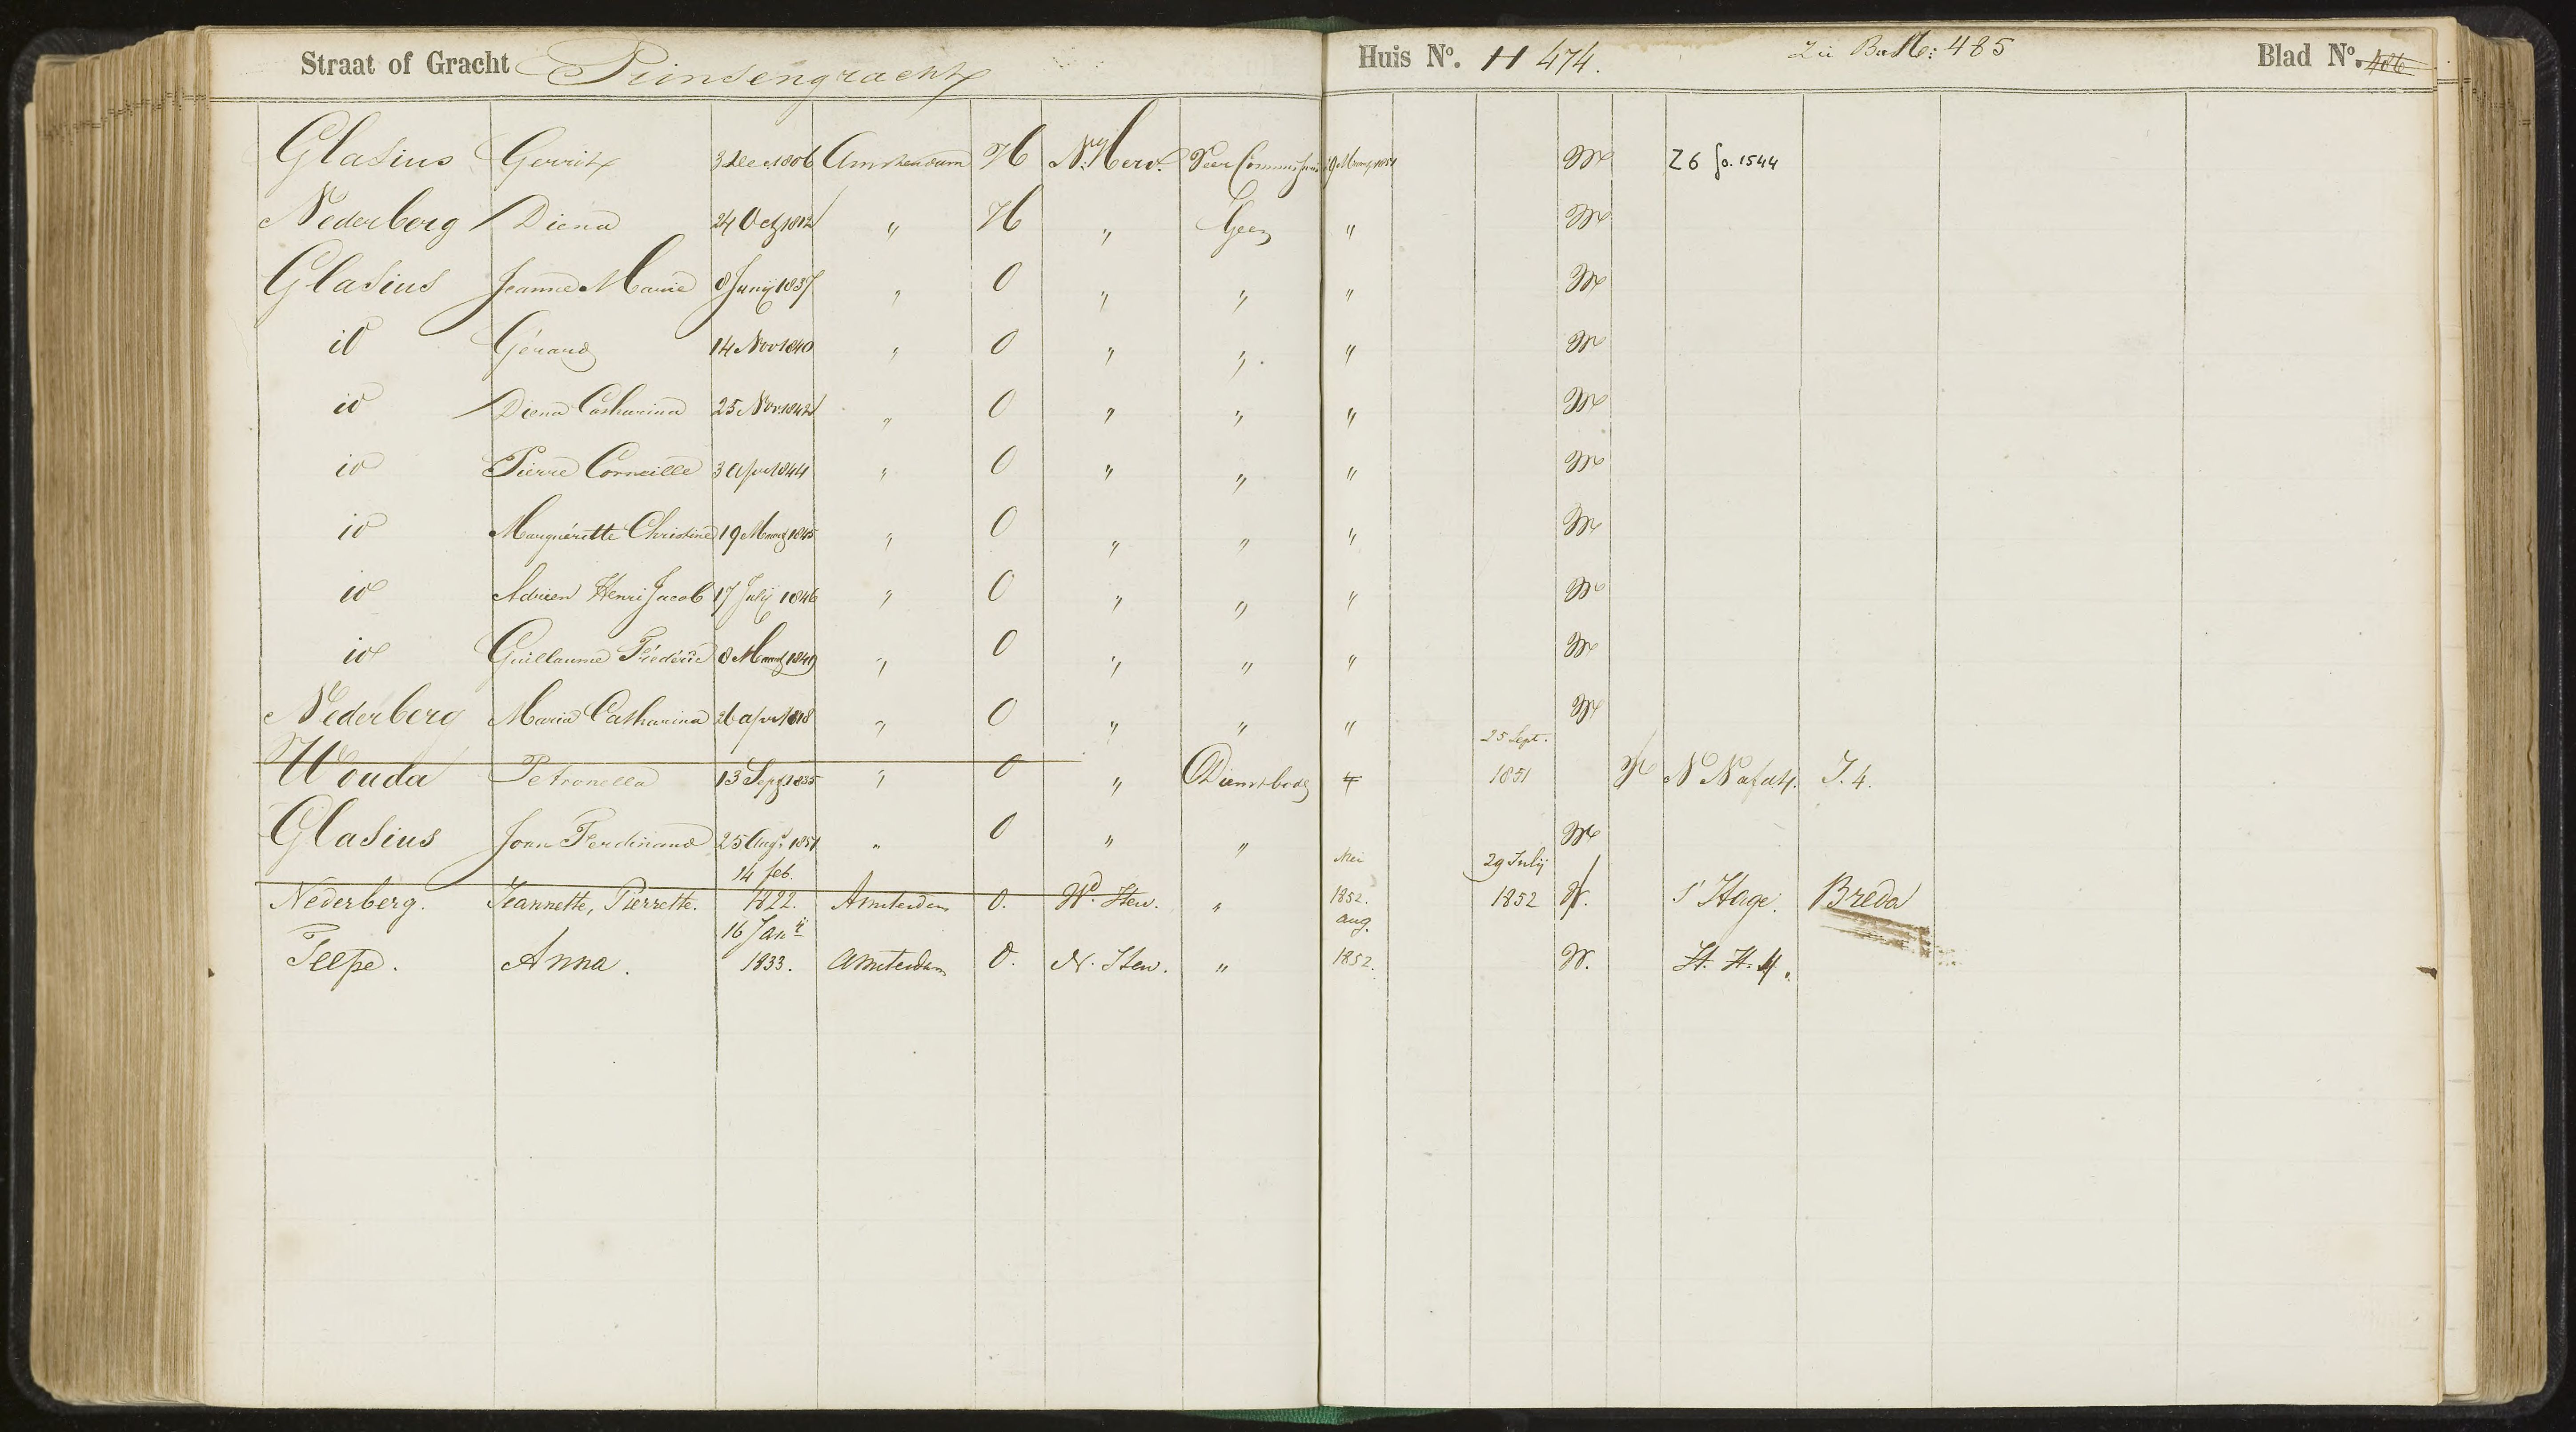 Straat of Gracht Prinsengracht Huis No. H 474. Zie Bu No: 485 Blad No. 486
Glasius Gerrit 3 Dec 1806 Amsterdam H N. Herv. 19 Maart 1851 W 26 fo. 1544
Nederberg Diena 24 Oct 1812 " H " Geen " W
Glasius Jeanne Marie 8 Junij 1837 " O " " " W
id Gérard 14 Nov 1840 " O " " " W
id Diena Catharina 25 Nov 1842 " O " " " W
id Pierre Corneille 3 Apr 1844 " O " " " W
id Marguérette Christine 19 Maart 1845 " O " " " W
id Adrien Henri Jacob 17 Julij 1846 " O " " " W
id Guillaume Fréderic 8 Maart 1849 " O " " " W
Nederberg Maria Catharina 26 Apr 1818 " O " " " W
Wouda Petronella 13 Sept 1835 " O " Dienstbode " 25 Sept. 1851 J. 4.
Glasius Jean Ferdinand 25 Aug. 1851 " O " " W
Nederberg. Jeannette, Pierrette. 14 feb. 1822. Amsterdam O. Wd. Herv. " Mei 1852. 29 Julij 1852 W. S' Hage. Breda
Anna. 16 Jan. 1833. Amsterdam O. N. Herv. " aug. 1852. W. H. H. 4.